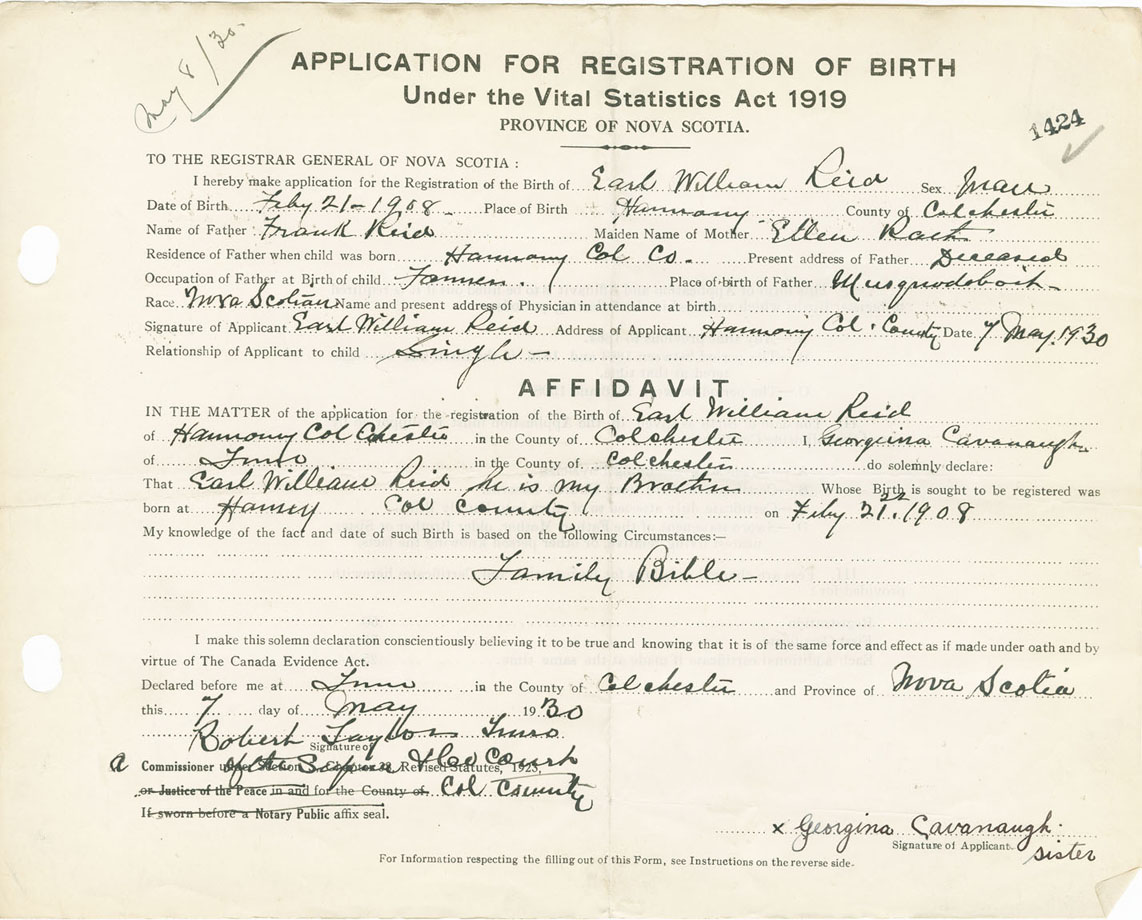 May 8/30.
APPLICATION FOR REGISTRATION OF BIRTH
Under the Vital Statistics Act 1919
PROVINCE OF NOVA SCOTIA.
1424
TO THE REGISTRAR GENERAL OF NOVA SCOTIA :
I hereby make application for the Registration of the Birth of Earl William Reid Sex Male
Date of Birth Feby 21-1908 Place of Birth Harmony County of Colchester
Name of Father Frank Reid Maiden Name of Mother Ellen
Residence of Father when child was born Harmony Col Co. Present address of Father Deceased
Occupation of Father at Birth of child Farmer. Place of birth of Father Musquodoboit
Race Nova Scotian Name and present address of Physician in attendance at birth
Signature of Applicant Earl William Reid Address of Applicant Harmony Col. County Date 7 May. 1930
Relationship of Applicant to child Single -
AFFIDAVIT
IN THE MATTER of the application for the registration of the Birth of Earl William Reid
of Harmony ColChester in the County of Colchester I, Georgina Cavanaugh
of Truro in the County of Colchester do solemnly declare:
That Earl William Reid he is my Brother Whose Birth is sought to be registered was
born at Col County on Feby 21. 1908
My knowledge of the fact and date of such Birth is based on the following Circumstances:—
Family Bible -
I make this solemn declaration conscientiously believing it to be true and knowing that it is of the same force and effect as if made under oath and by
virtue of The Canada Evidence Act.
Declared before me at Truro in the County of Colchester and Province of Nova Scotia
this 7 day of May 1930
Robert Taylor Truro
Signature of
a Commissioner of the Court Revised Statutes, 1923,
or Justice of the Peace in and for the County of Col County
If sworn before a Notary Public affix seal.
x Georgina Cavanaugh
Signature of Applicant
sister
For Information respecting the filling out of this Form, see Instructions on the reverse side.